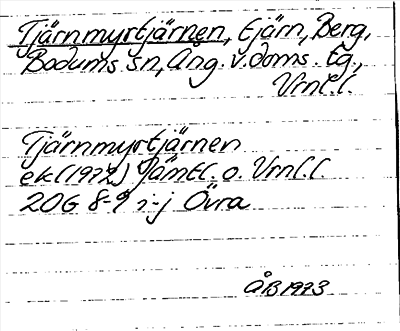 Tjärnmyrtjärnen, tjärn, Berg,
Bodums sn, Ång. v. doms. tg.,
Vrnl. l.
Tjärnmyrtjärnen
ek (1972) Jämtl. o. Vrnl. l.
20G 8-9 i-j Övra
ÅB 1973